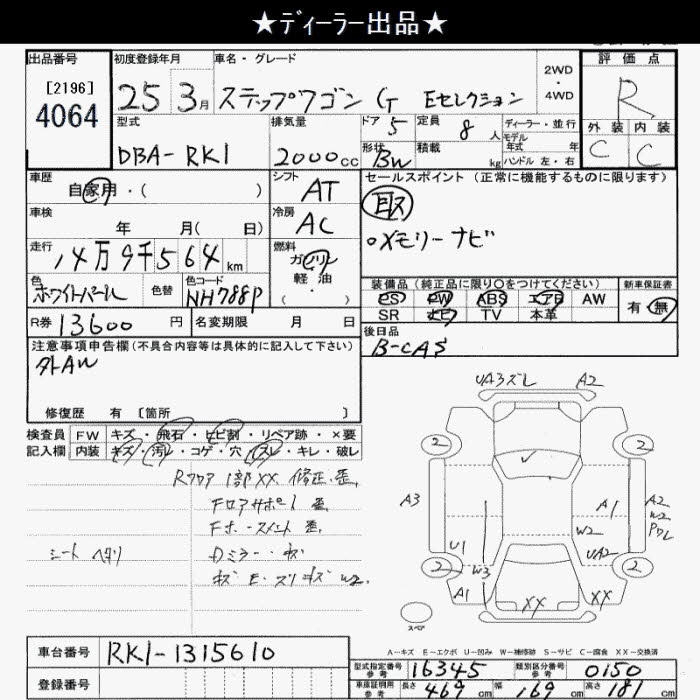 ★ディーラー出品★
出品番号 初度登録年月 車名・グレード 2WD・4WD 評価点
[2196]
4064 25 3月 ステップワゴン G Eセレクション R
型式 排気量 ドア 5 定員 8人 ディーラー・並行 外装 内装
モデル年式 年
DBA-RK1 2000cc 形状 BW 積載 kg ハンドル 左・右 C C
車歴 自家用・( ) シフト AT セールスポイント (正常に機能するものに限ります)
車検 年 月( 日) 冷房 AC
oメモリーナビ
走行 14万9千564km 燃料 ガソリン 軽油 ( ・ )
色 ホワイトパール 色替 色コード NH788P
装備品 (純正品に限り〇をつけてください) 新車保証書
PS PW ABS エアB AW 有・無
SR ナビ TV 本革
R券 13600円 名変期限 月 日
後日品
B-CAS
注意事項申告欄 (不具合内容等は具体的に記入して下さい)
外AW
修復歴 有 [箇所 ]
検査員 FW キズ・飛石・ヒビ割・リペア跡・×要
記入欄 内装 キズ・汚レ・コゲ・穴・スレ・キレ・破レ
Rフロア 1部XX 修正・歪
Fロアサポート 歪
Fホースメント 歪
シート ヘタリ
Dミラー・キズ
UA3ズレ A2
2 2
A3 A1 A2
W2
W2
U1 UA2
2 W3 2
A1 XX XX
スペア
A-キズ E-エクボ U-凹み W-補修跡 S-サビ C-腐食 XX-交換済
車台番号 RK1-1315610
登録番号
型式指定番号 参考 16345 類別区分番号 参考 0150
車庫証明用 参考 長さ 469cm 幅 169cm 高さ 181cm